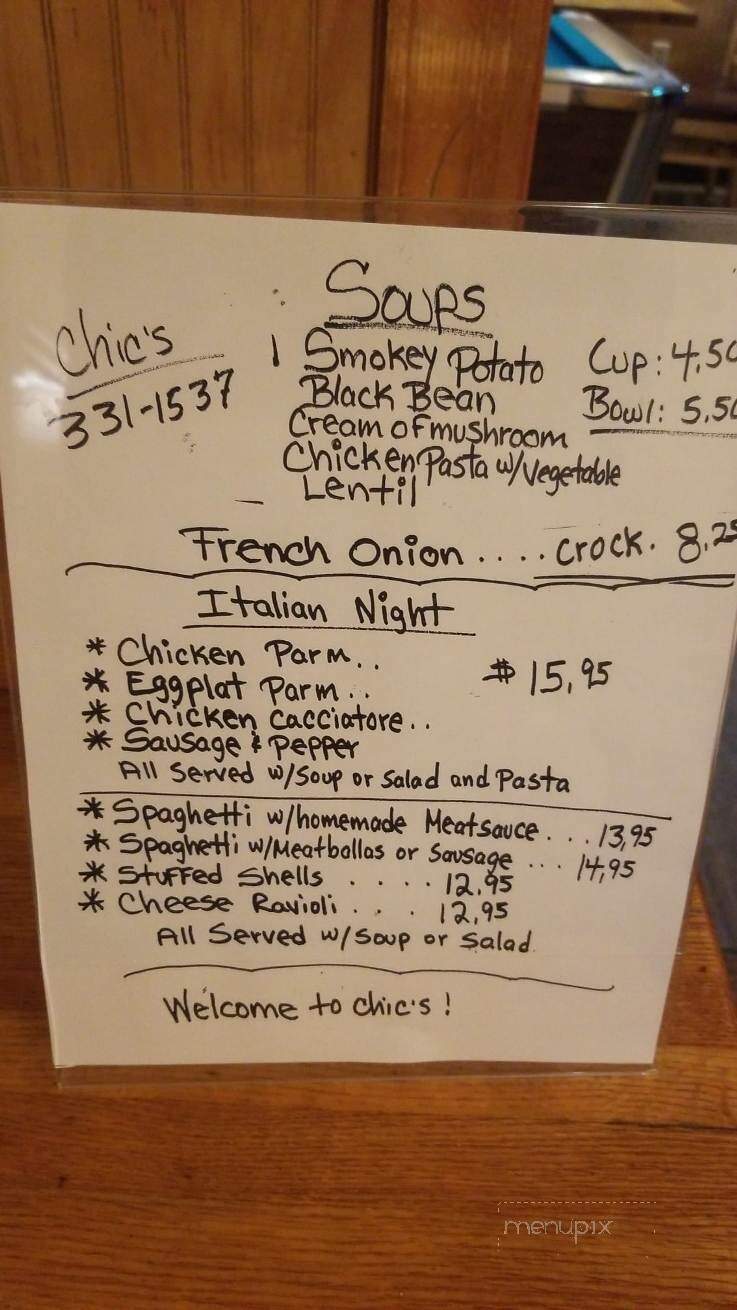 Soups
Chic's
331-1537
Smokey Potato Cup: 4.50
Black Bean Bowl: 5.50
Cream of mushroom
Chicken Pasta w/Vegetable
Lentil
French Onion .... crock. 8.25
Italian Night
* Chicken Parm..
* Eggplat Parm.. $15,95
* Chicken Cacciatore..
* Sausage & Pepper
All Served w/Soup or Salad and Pasta
* Spaghetti w/homemade Meatsauce... 13,95
* Spaghetti w/Meatballas or Sausage ... 14,95
* Stuffed Shells .... 12.95
* Cheese Ravioli ... 12,95
All Served w/Soup or Salad
Welcome to Chic's!
menupix